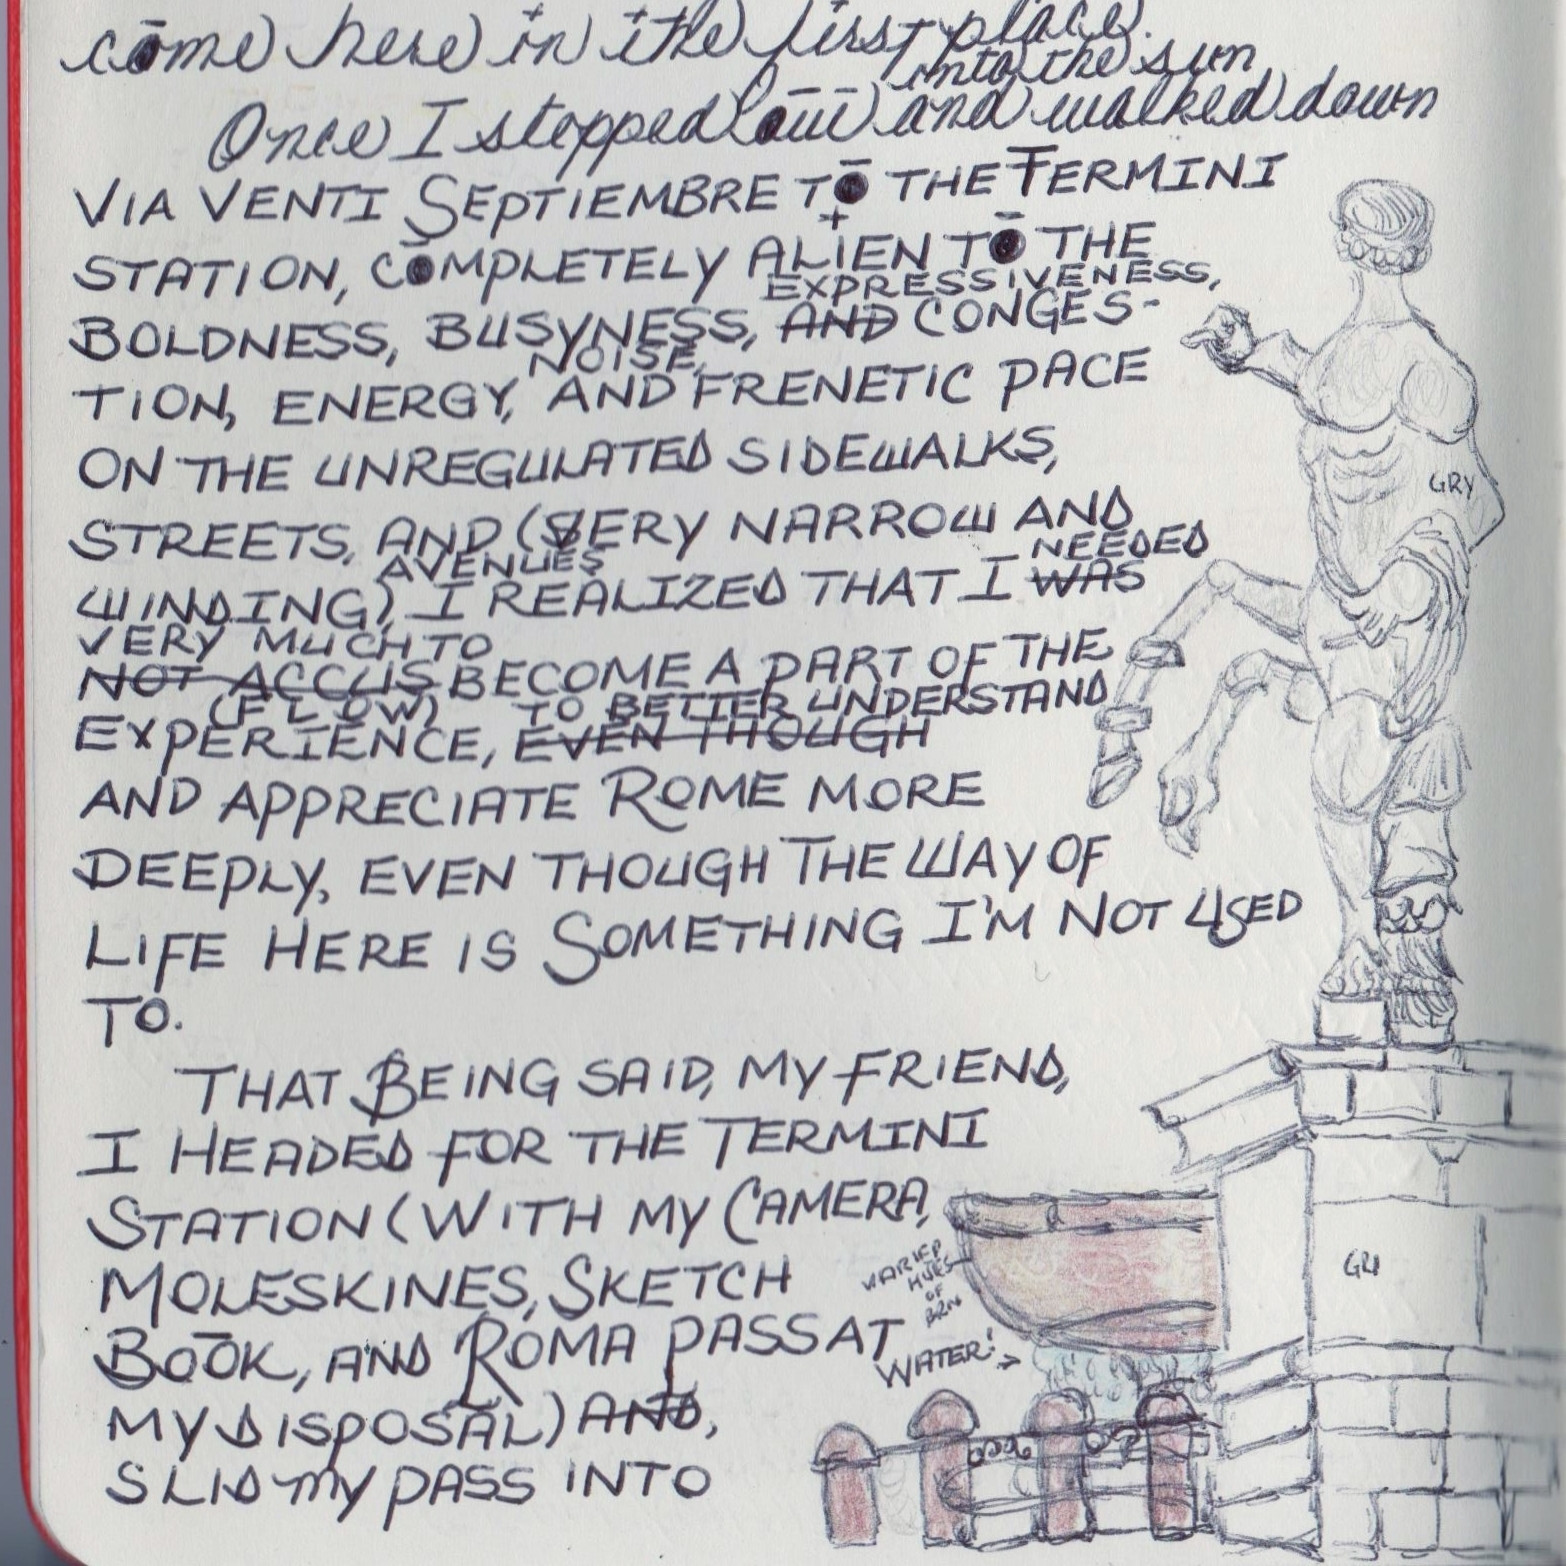 come here in the first place.
into the sun
Once I stepped out and walked down
VIA VENTI SEPTIEMBRE TO THE TERMINI
STATION, COMPLETELY ALIEN TO THE
EXPRESSIVENESS,
BOLDNESS, BUSYNESS, AND CONGES-
NOISE,
TION, ENERGY, AND FRENETIC PACE
ON THE UNREGULATED SIDEWALKS,
STREETS, AND (VERY NARROW AND
AVENUES NEEDED
WINDING), I REALIZED THAT I WAS
VERY MUCH TO
NOT ACCUS BECOME A PART OF THE
(FLOW) TO BETTER UNDERSTAND
EXPERIENCE, EVEN THOUGH
AND APPRECIATE ROME MORE
DEEPLY, EVEN THOUGH THE WAY OF
LIFE HERE IS SOMETHING I'M NOT USED
TO.
THAT BEING SAID, MY FRIEND,
I HEADED FOR THE TERMINI
STATION (WITH MY CAMERA,
MOLESKINES, SKETCH
BOOK, AND ROMA PASS AT
MY DISPOSAL) AND,
SLID MY PASS INTO
GRY
GRY
VARIED
HUES
OF
BRN
WATER! →